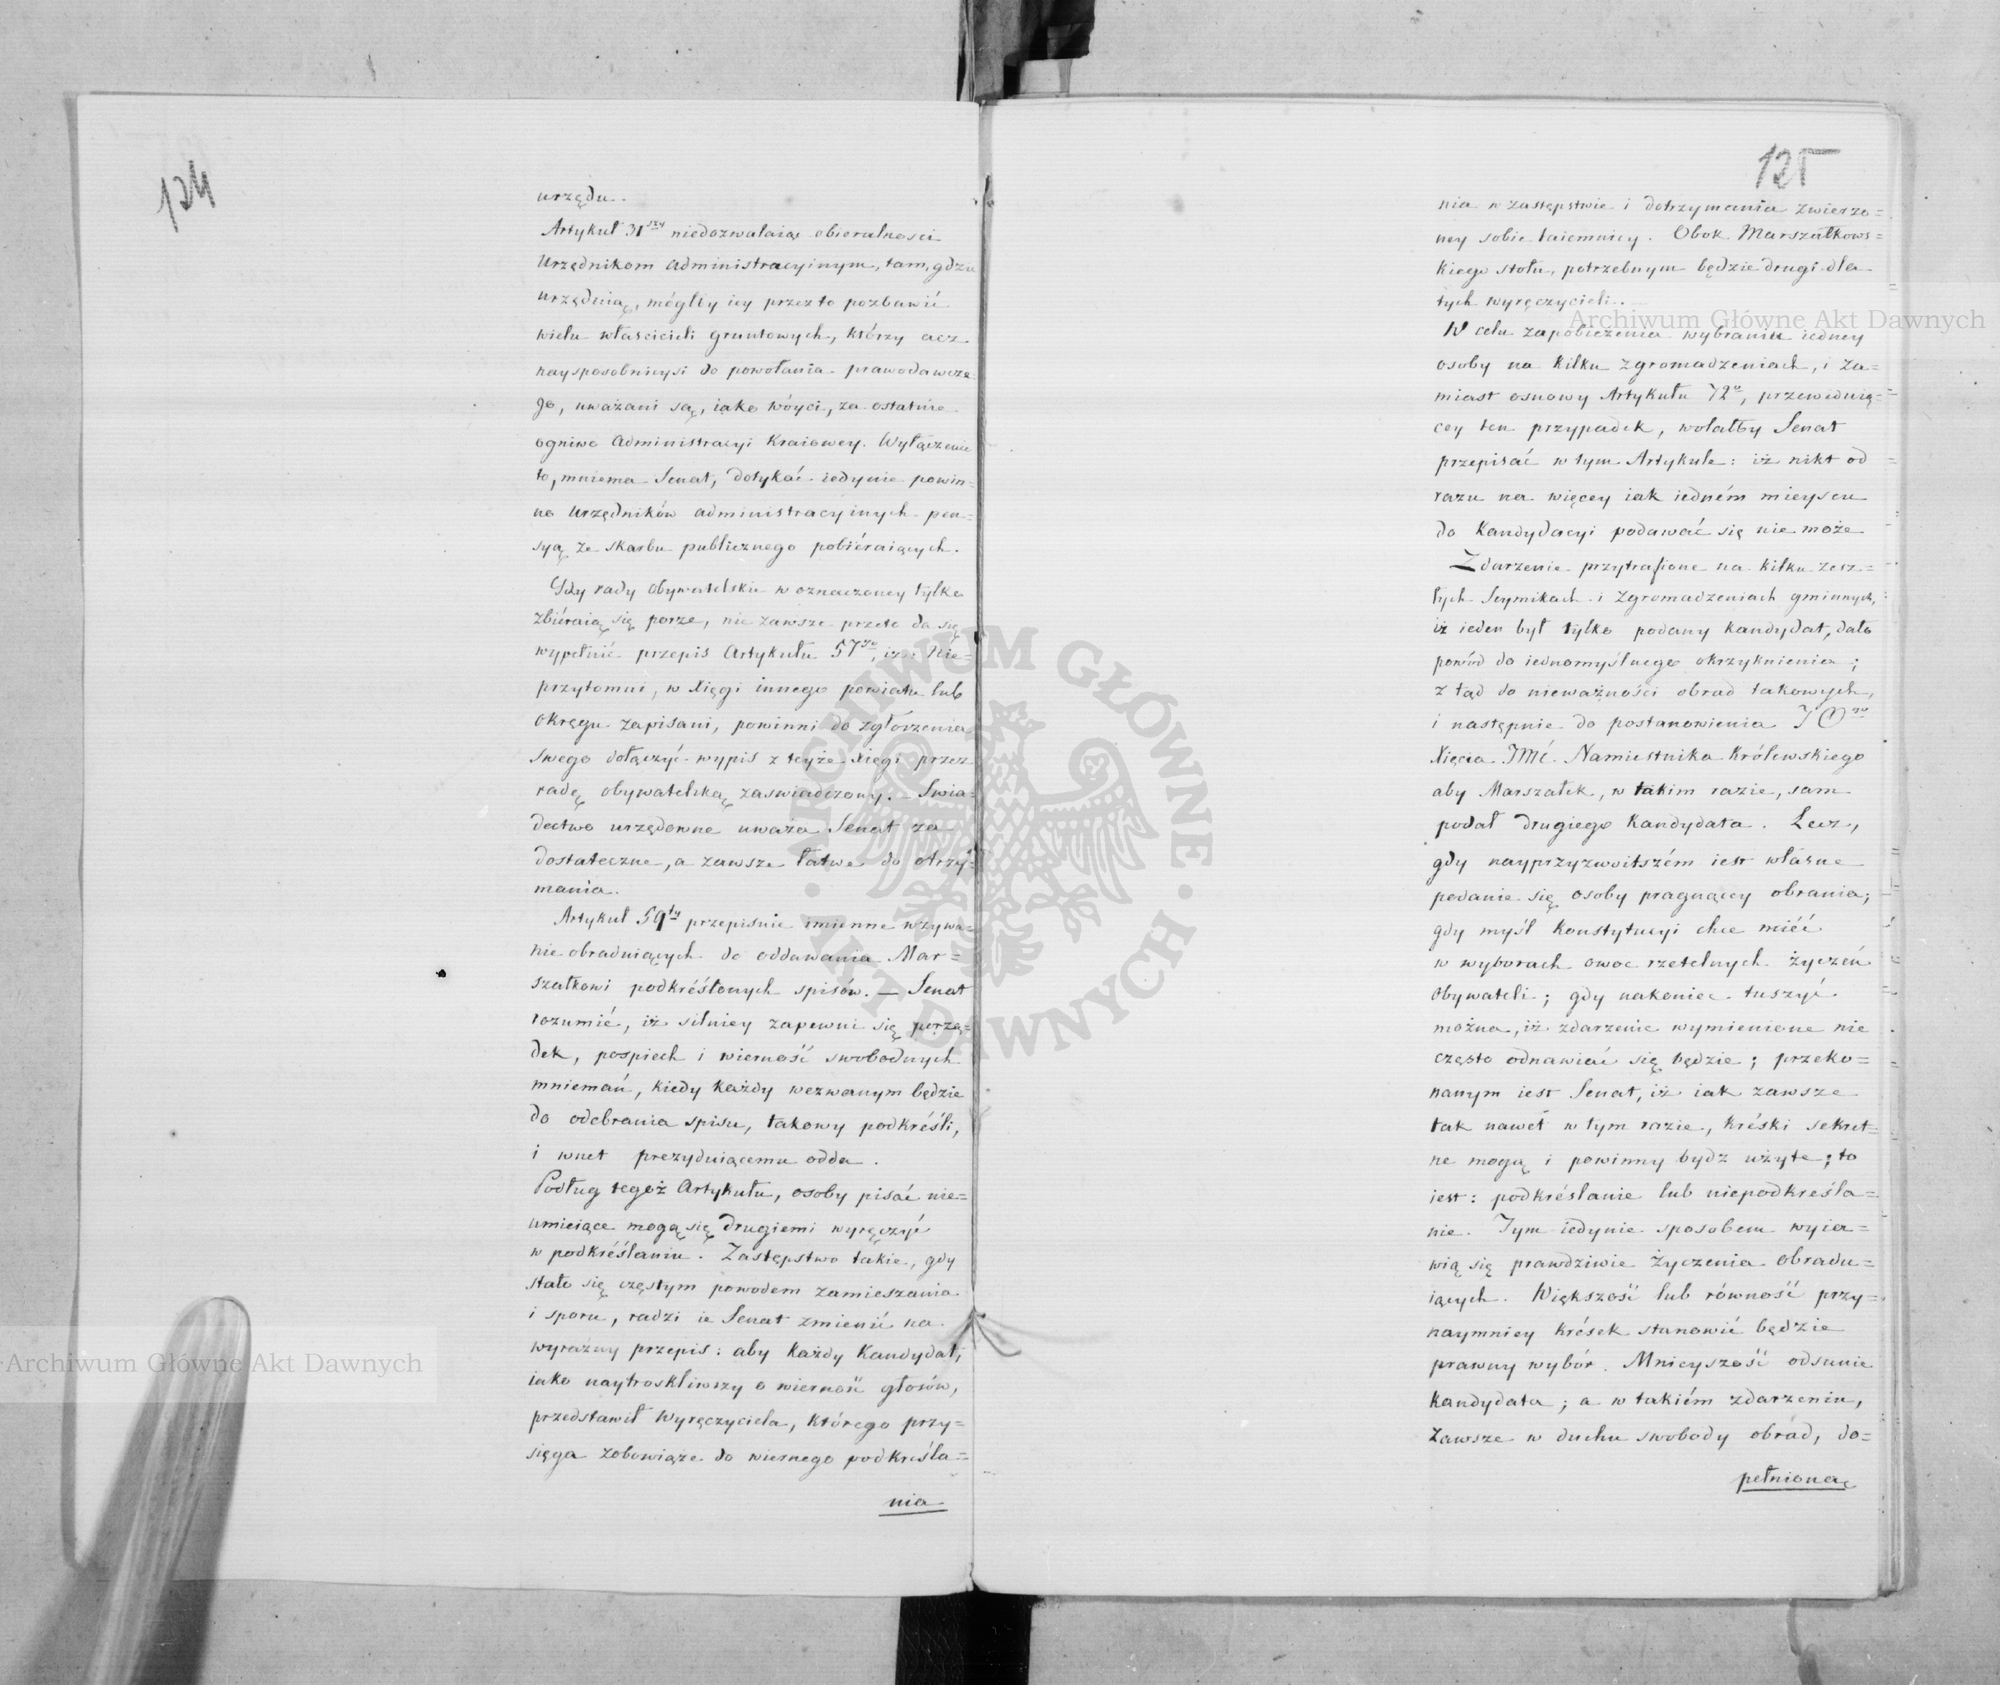 124
urzędu.
Artykuł 31szy niedozwalaiąc obieralności
Urzędnikom Administracyinym, tam, gdzie
urzęduią, mógłby iey przez to pozbawić
wielu właścicieli gruntowych, którzy acz
naysposobnieysi do powołania prawodawcze
go, uważani są, iako wóyci, za ostatnie
ogniwo Administracyi Kraiowey. Wyłączenie
to, mniema Senat, dotykać iedynie powin=
no Urzędników administracyinych pen=
syą ze skarbu publicznego pobiéraiących.
Gdy rady Obywatelskie w oznaczoney tylko
zbiéraią się porze, nie zawsze przeto da się
wypełnić przepis Artykułu 57go, iż: Nie=
przytomni, w Xięgi innego powiatu lub
okręgu zapisani, powinni do zgłoszenia
swego dołączyć wypis z teyże Xięgi przez
radę obywatelską zaświadczony. — Świa=
dectwo urzędowne uważa Senat za
dostateczne, a zawsze łatwe do otrzy=
mania.
Artykuł 59ty przepisuie imienne wzywa=
nie obraduiących do oddawania Mar=
szałkowi podkréślonych spisów. — Senat
rozumié, iż silniey zapewni się porzą=
dek, pospiech i wierność swobodnych
mniemań, kiedy każdy wezwanym będzie
do odebrania spisu, takowy podkréśli,
i wnet prezyduiącemu odda.
Podług tegoż Artykułu, osoby pisać nie=
umieiące mogą się drugiemi wyręczyć
w podkréślaniu. Zastępstwo takie, gdy
stało się częstym powodem zamieszania
i sporu, radzi ie Senat zmienić na
wyraźny przepis: aby każdy Kandydat,
iako naytroskliwszy o wierność głosów,
przedstawił Wyręczyciela, którego przy=
sięga zobowiąże do wiernego podkreśla=
nia
125
nia w zastępstwie i dotrzymania zwierzo=
ney sobie taiemnicy. Obok Marszałkows=
kiego stołu, potrzebnym będzie drugi dla
tych wyręczycieli.
W celu zapobieżenia wybraniu iedney
osoby na kilku zgromadzeniach, i za=
miast osnowy Artykułu 72o, przewiduią=
cey ten przypadek, wolałby Senat
przepisać w tym Artykule: iż nikt od
razu na więcey iak iedném mieyscu
do Kandydacyi podawać się nie może
Zdarzenie przytrafione na kilku zesz=
łych Seymikach i Zgromadzeniach gminnych,
iż ieden był tylko podany kandydat, dało
powód do iednomyślnego okrzyknienia;
z tąd do nieważności obrad takowych,
i następnie do postanowienia JOgo
Xięcia JMć. Namiestnika Królewskiego
aby Marszałek, w takim razie, sam
podał drugiego Kandydata. Lecz,
gdy nayprzyzwoitszém iest własne
podanie się osoby pragnącey obrania;
gdy myśl Konstytucyi chce mićć
w wyborach owoc rzetelnych życzeń
Obywateli; gdy nakoniec tuszyć
można, iż zdarzenie wymienione nie
często odnawiać się będzie; przeko=
nanym iest Senat, iż iak zawsze
tak nawet w tym razie, kréski sekret=
ne mogą i powinny bydz użyte; to
iest: podkréslanie lub niepodkreśla=
nie. Tym iedynie sposobem wyia=
wią się prawdziwie życzenia obradu=
iących. Większość lub równość przy=
naymniey krések stanowić będzie
prawny wybór. Mnieyszość odsunie
kandydata; a w takiém zdarzeniu,
zawsze w duchu swobody obrad, do=
pełnioną
Archiwum Główne Akt Dawnych
Archiwum Główne Akt Dawnych
ARCHIWUM GŁÓWNE · AKT DAWNYCH ·